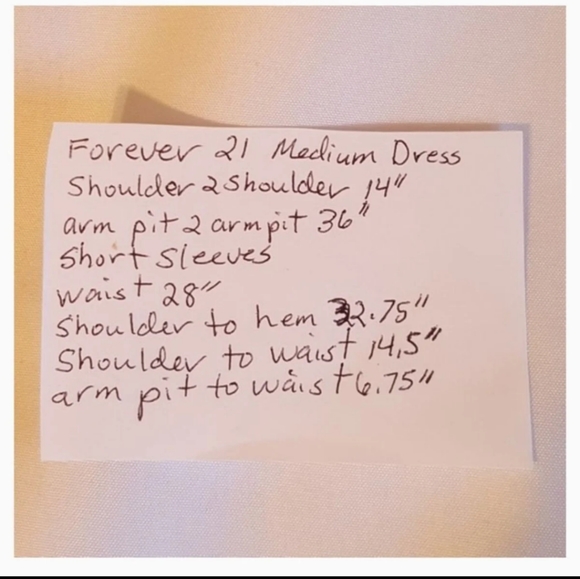 Forever 21 Medium Dress
Shoulder 2 Shoulder 14"
arm pit 2 arm pit 36"
Short Sleeves
Waist 28"
Shoulder to hem 32.75"
Shoulder to waist 14.5"
arm pit to waist 6.75"